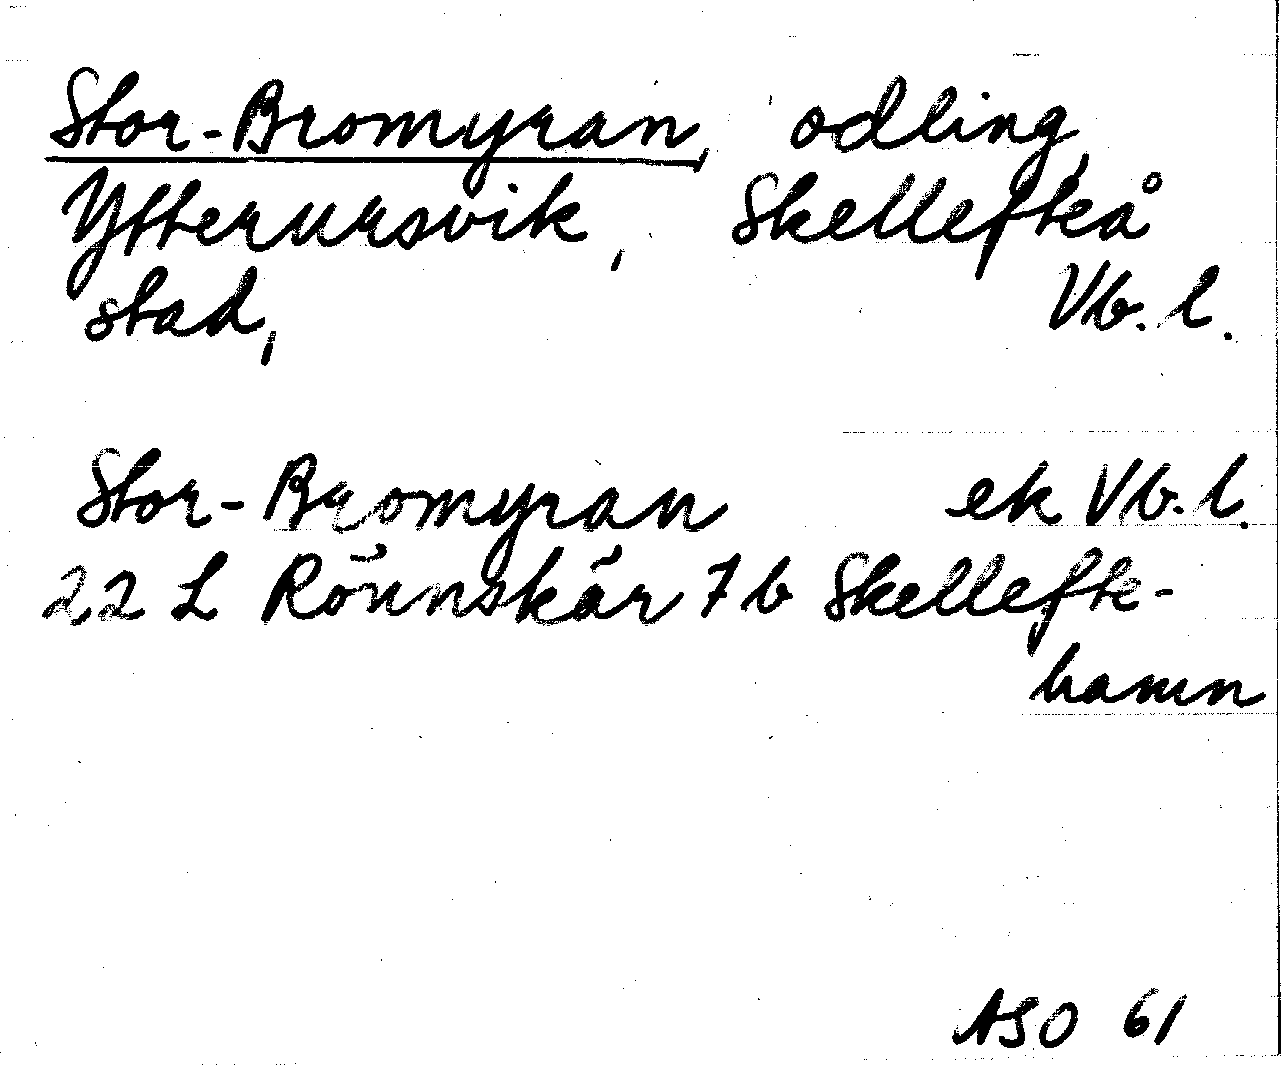 Stor-Bromyran, odling,
Ytterursvik, Skellefteå
stad, Vb. l.
Stor-Bromyran ek Vb. l.
22 L Rönnskär 7 b Skellefte-
hamn
ASO 61